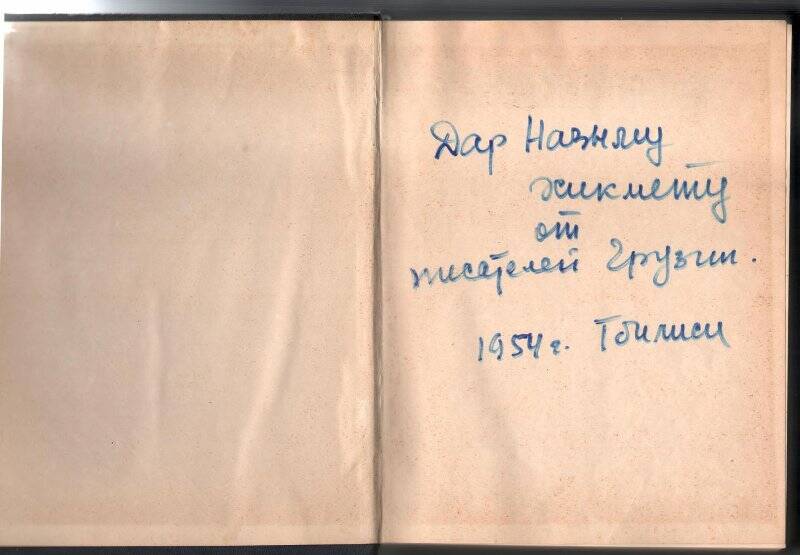 Дар Назыму
Хикмету
от
писателей Грузии.
1954 г. Тбилиси